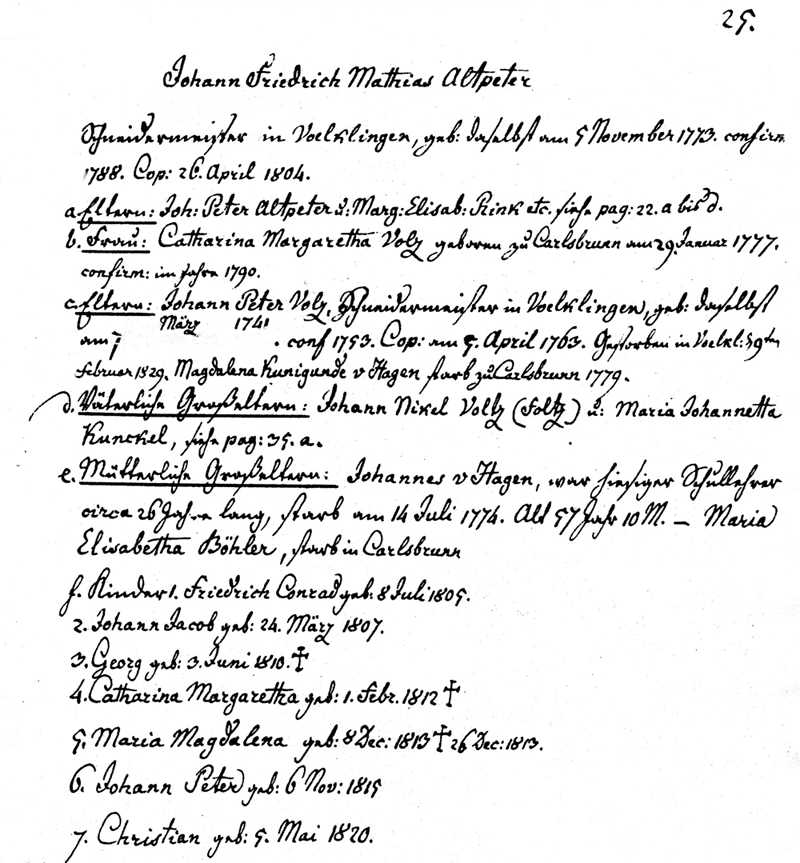 25.
Johann Friedrich Mathias Altpeter
Schneidermeister in Voelklingen, geb: daselbst am 5 November 1773. confirm
1788. Cop: 26. April 1804.
a. Eltern: Joh: Peter Altpeter u: Marg: Elisab: Rink etc. siehe pag: 22. a bis d.
b. Frau: Catharina Margaretha Volz geboren zu Carlsbrunn am 29. Januar 1777.
confirm: im Jahre 1790.
c. Eltern: Johann Peter Volz, Schneidermeister in Voelklingen, geb: daselbst
März 1741
am 7 . conf 1753. Cop: am 5. April 1763. Gestorben in Voelkl: 59ten
Februar 1829. Magdalena Kunigunde v Hagen starb zu Carlsbrunn 1779.
d. Väterliche Großeltern: Johann Nikel Voltz (Foltz) u: Maria Johannetta
Kunckel, siehe pag: 35. a.
e. Mütterliche Großeltern: Johannes v Hagen, war hiesiger Schullehrer
circa 26 Jahre lang, starb am 14 Juli 1774. Alt 57 Jahr 10 M. – Maria
Elisabetha Böhler, starb in Carlsbrunn
f. Kinder 1. Friedrich Conrad geb: 8 Juli 1805.
2. Johann Jacob geb: 24. März 1807.
3. Georg geb: 3. Juni 1810. ✝
4. Catharina Margaretha geb: 1. Febr. 1812 ✝
5. Maria Magdalena geb: 8 Dec: 1813 ✝ 26 Dec: 1813.
6. Johann Peter geb: 6 Nov: 1815
7. Christian geb: 5. Mai 1820.